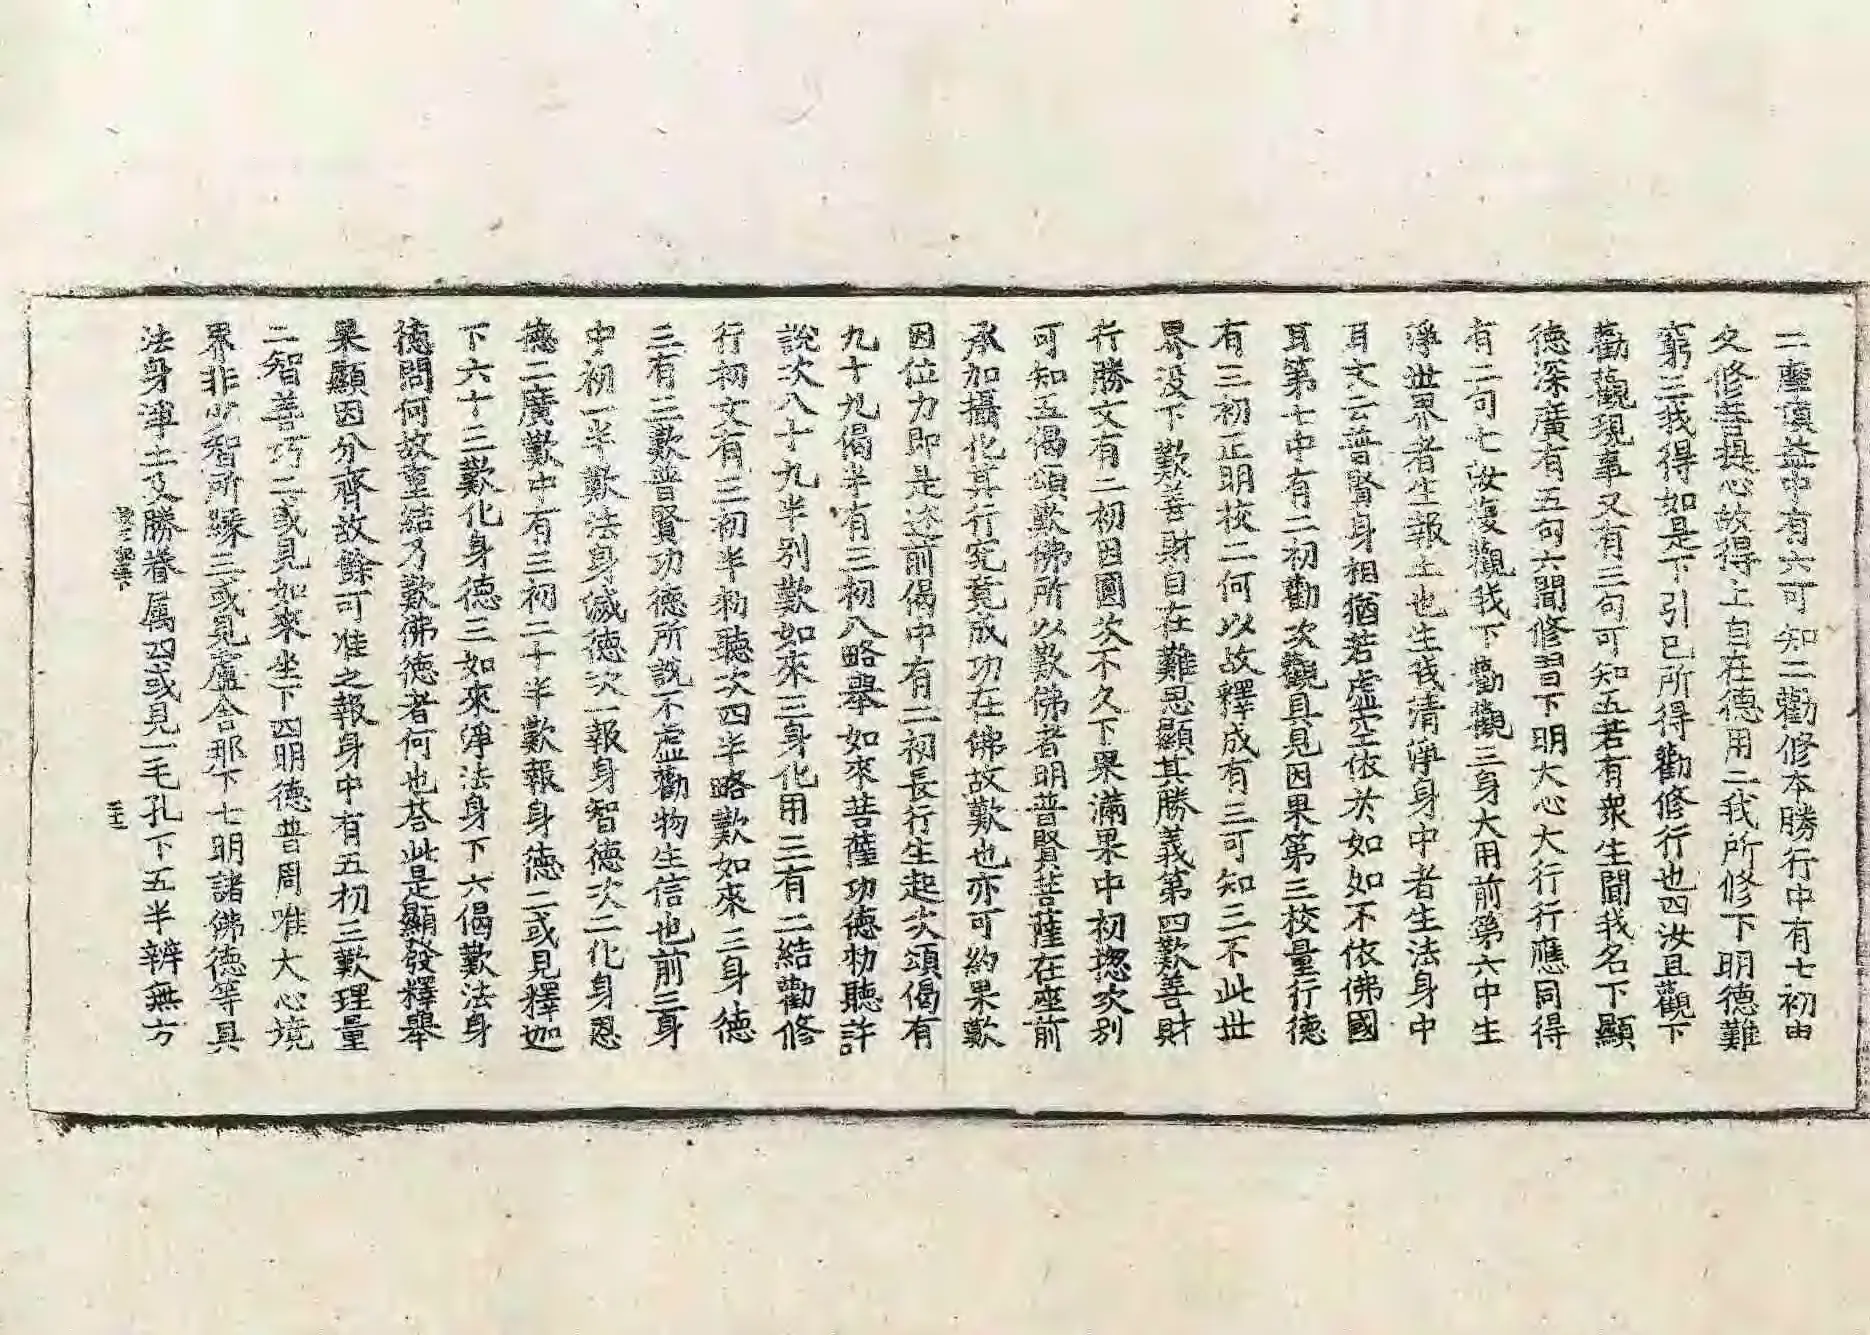 二摩頂益中有六可知二勸修本勝行中有七初由
久修菩提心故得上自在德用二我所修下明德難
窮三我得如是下引已所得勸修行也四汝且觀下
勸觀現事又有三句可知五若有衆生聞我名下顯
德深廣有五句六聞修習下明大心大行行應同得
有二句七汝復觀我下勸觀三身大用前第六中生
淨世界者生報土也生我清淨身中者生法身中
耳文云普賢身相猶若虛空依於如如不依佛國
耳第七中有二初勸次觀具見因果第三校量行德
有三初正明校二何以故釋成有三可知三不此世
界没下歎善財自在難思顯其勝義第四歎善財
行勝文有二初因圓次不久下果滿果中初揔次別
可知五偈頌歎佛所以歎佛者明普賢菩薩在座前
承加攝化其行究竟成功在佛故歎也亦可約果歎
因位力即是迹前偈中有二初長行生起次頌偈有
九十九偈半有三初八略舉如來菩薩功德勑聽許
說次八十九半別歎如來三身化用三有二結勸修
行初文有三初半勑聽次四半略歎如來三身德
三有三歎普賢功德所說不虛勸物生信也前三身
中初一半歎法身滅德次一報身智德次二化身恩
德二廣歎中有三初二十半歎報身德二或見釋迦
下六十三歎化身德三如來淨法身下六偈歎法身
德問何故重結乃歎佛德者何也荅此是顯發釋舉
果顯因分齊故餘可准之報身中有五初三歎理量
二智善巧二或見如來坐下四明德普周唯大心境
界非少智所緣三或見盧舍那下七明諸佛德等具
法身淨土及勝眷属四或見一毛孔下五半辨無方